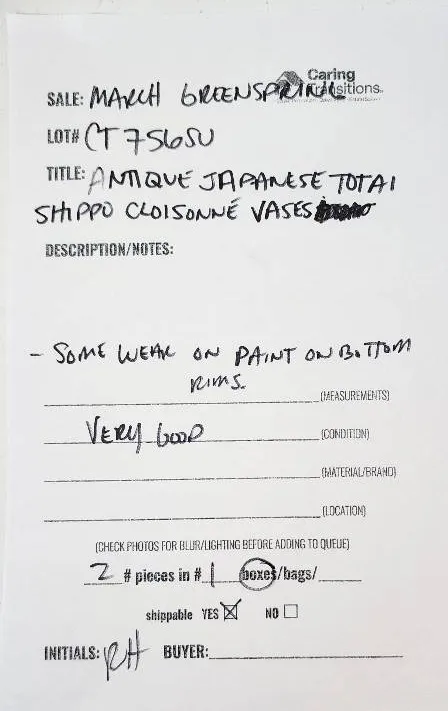 Caring
Transitions
SALE: MARCH GREENSPRING
LOT# CT7565U
TITLE: ANTIQUE JAPANESE TOTAI
SHIPPO CLOISONNÉ VASES
DESCRIPTION/NOTES:
- SOME WEAR ON PAINT ON BOTTOM
RIMS.
(MEASUREMENTS)
VERY GOOD (CONDITION)
(MATERIAL/BRAND)
(LOCATION)
(CHECK PHOTOS FOR BLUR/LIGHTING BEFORE ADDING TO QUEUE)
2 # pieces in # 1 boxes/bags/
shippable YES ☒ NO ☐
INITIALS: RH BUYER: